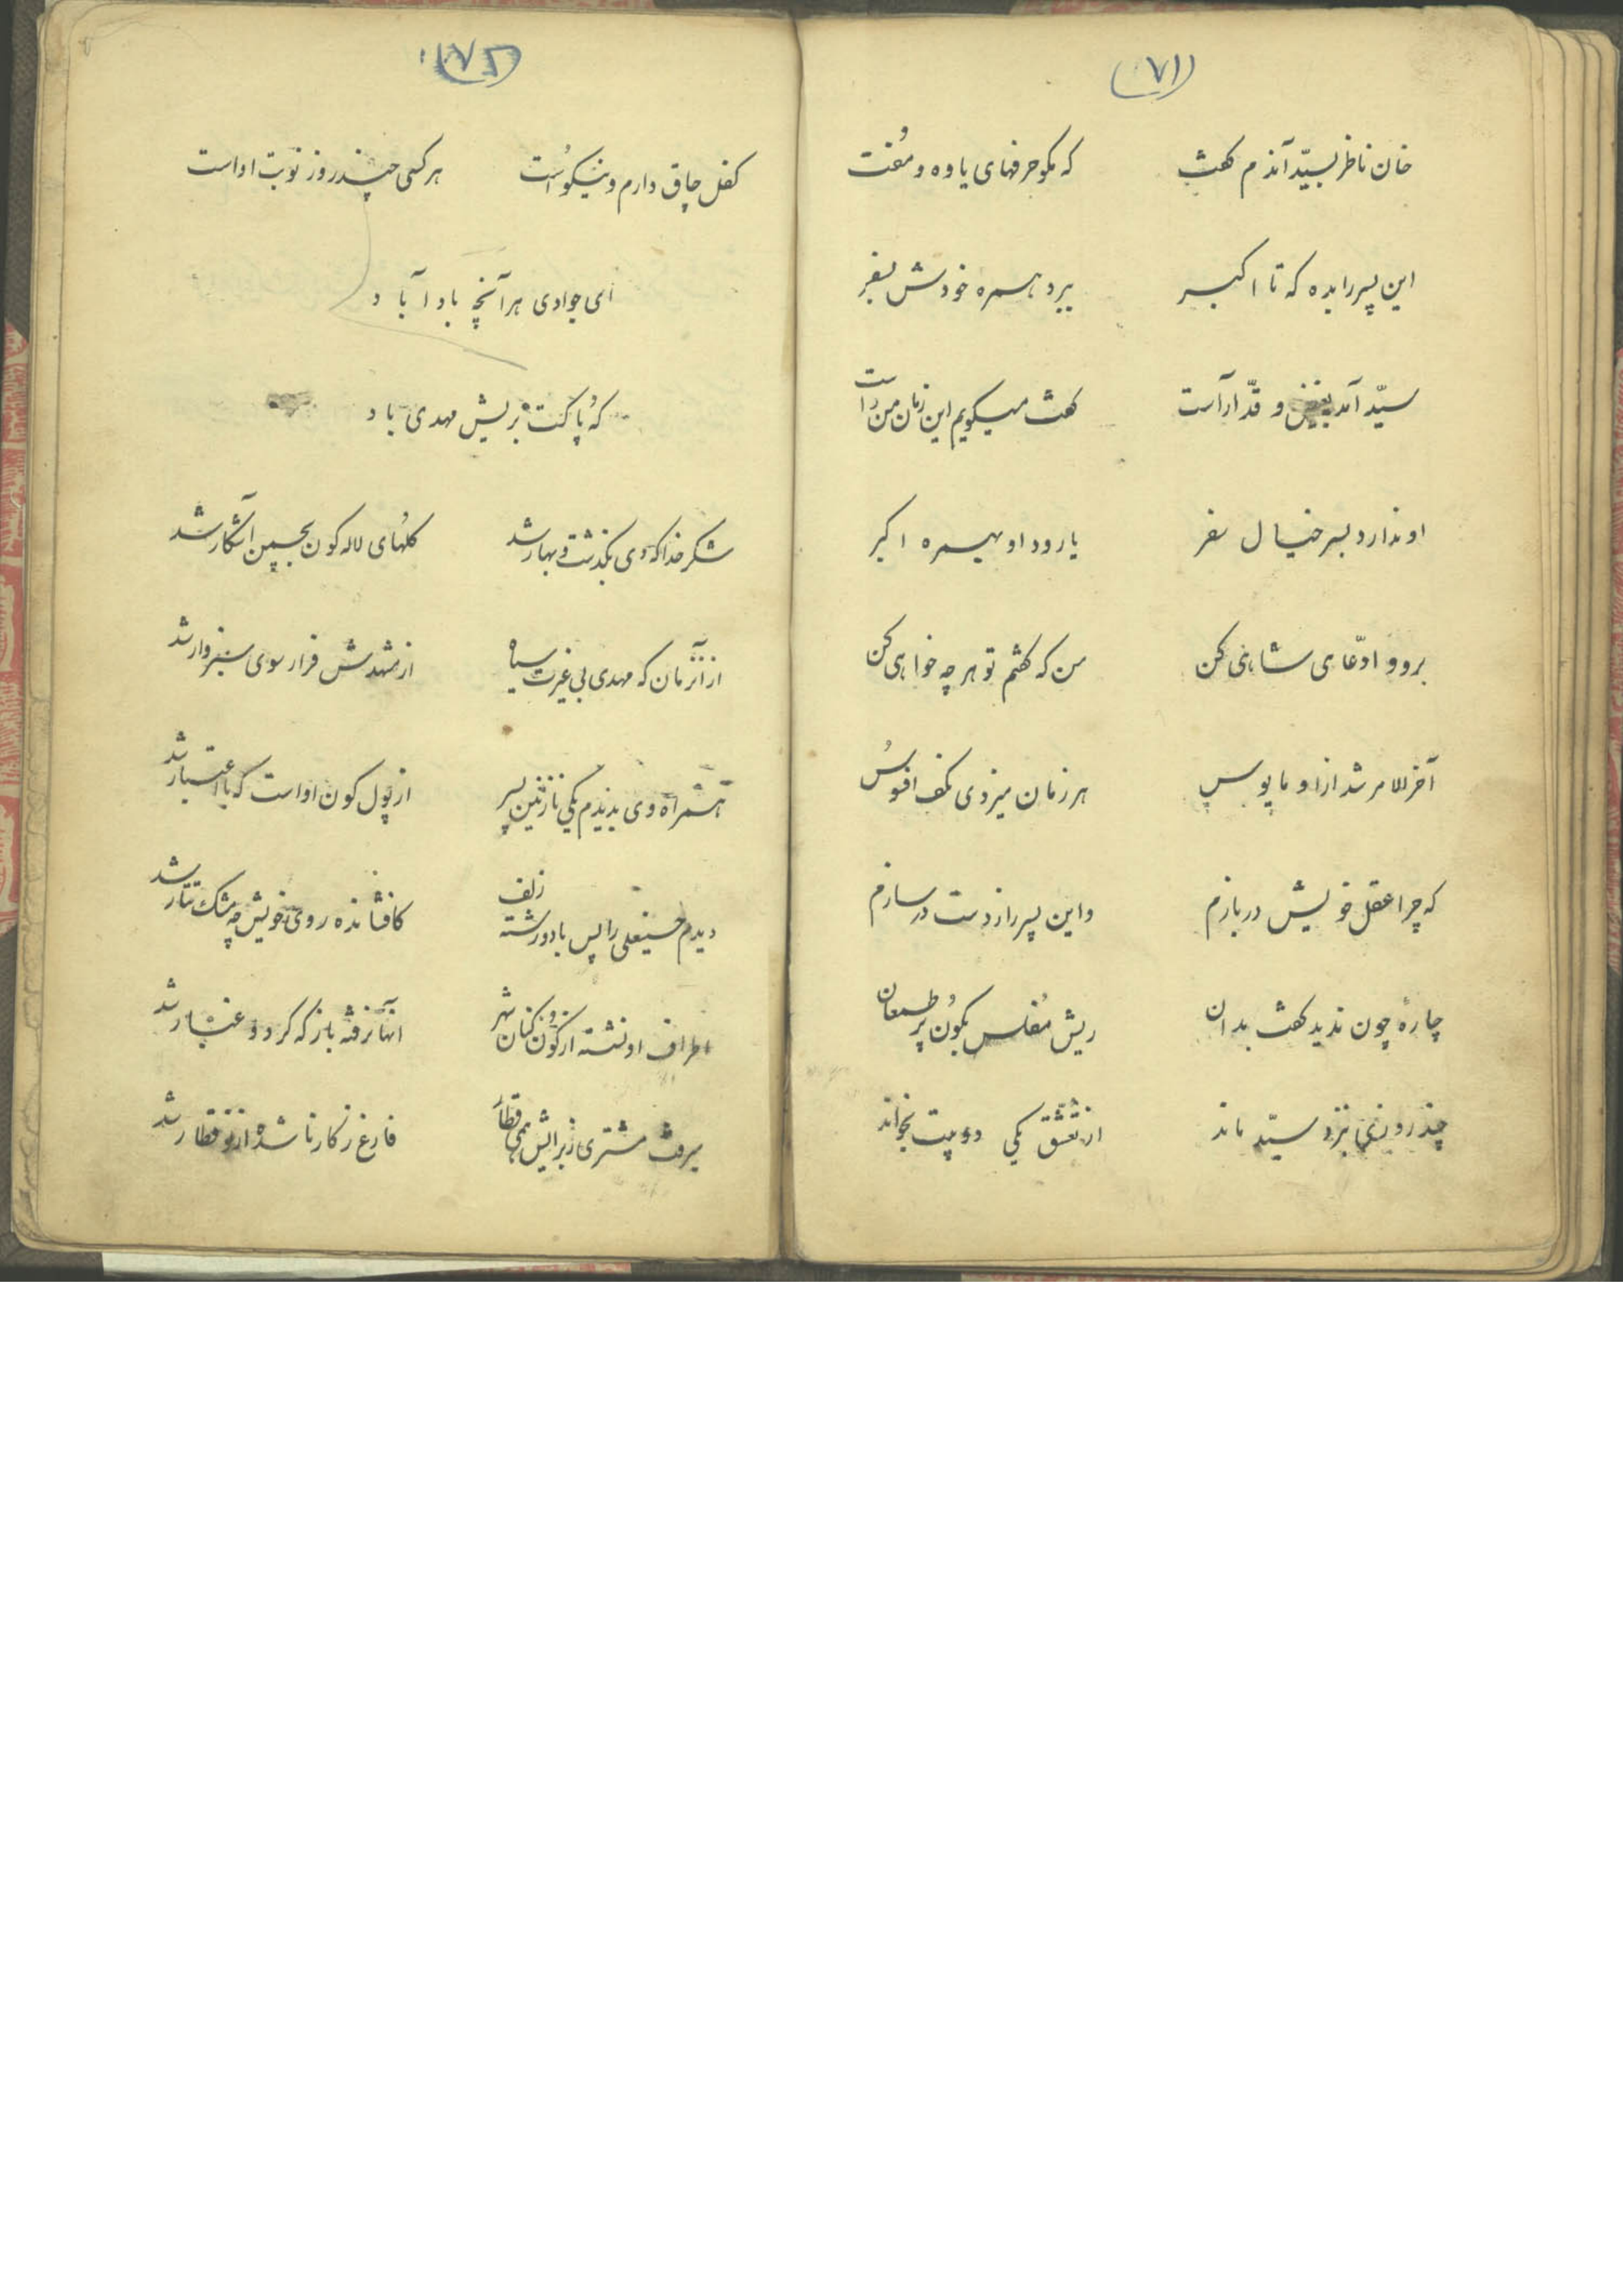 (۷۱)
خان ناظر بسیّد آندم گفت که مگو حرفهای یاوه و مُفت
این پسر را بده که تا اکبر ببرد همره خودش بسفر
سیّد آمد و قدّ آراست گفت میگویم این زمان من راست
او ندارد بسر خیال سفر یا رود او بهمره اکبر
برو و ادّعای شاهی کن من که گفتم تو هر چه خواهی کن
آخرالامر شد از او مایوس هر زمان میزدی بکف افسوس
که چرا عقل خویش در بازم واین پسر را ز دست در سازم
چارهٔ چون ندید گفت بدان ریش مُفلس بکُون پُر طمعان
چند روزی بنزد سیّد ماند از تعشق یکی دو بیت بخواند
(۱۷۲)
کفل چاق دارم و نیکوُ است هر کسی چند روز نوبت او است
ای جوادی هر آنچه بادا باد
که بریش مهدی باد
شکر خدا که دی بگذشت و بهار شد گلهُای لاله گون بچمن آشکار شد
از آنزمان که مهدی بی غیرت سیاه از مشهدش فرار سوی سبزوار شد
همراه وی بدیدم یکی نازنین پسر از پول کون او است که با اعتبار شد
دیدم حسینعلی را پس با دو رشته زلف کافشانده روی خویش چه مشک تتار شد
اطراف او نشسته از کون کنان شهر آنها نرفته باز که گرد و غبار شد
میرفت مشتری ز برایش همی قطار فارغ ز کار نا شده از نو قطار شد